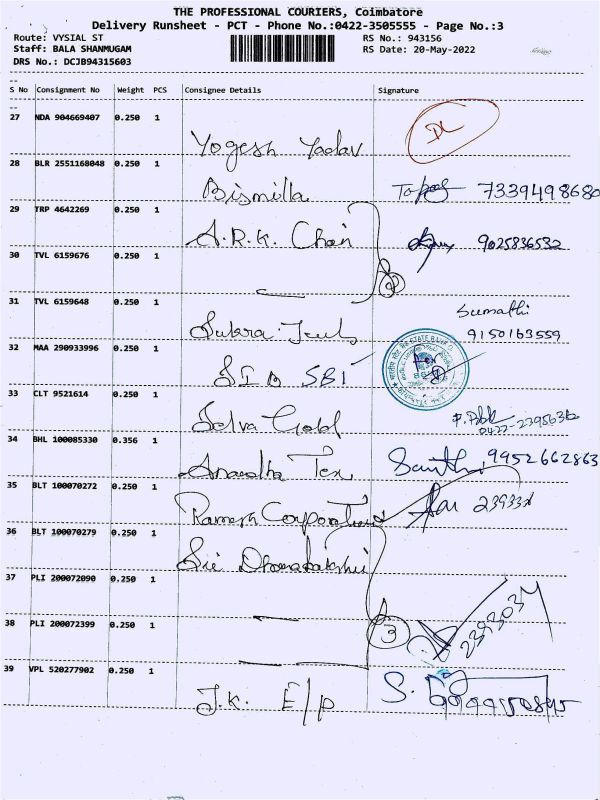 THE PROFESSIONAL COURIERS, Coimbatore
Delivery Runsheet - PCT - Phone No.:0422-3505555 - Page No.:3
Route: VYSIAL ST RS No.: 943156
Staff: BALA SHANMUGAM RS Date: 20-May-2022
DRS No.: DCJB94315603
S No Consignment No Weight PCS Consignee Details Signature
27 NDA 904669407 0.250 1
Yogesh Yadav
28 BLR 2551168048 0.250 1
Bismilla 7339498680
29 TRP 4642269 0.250 1
A.R.K. Chain 9025836532
30 TVL 6159676 0.250 1
2
31 TVL 6159648 0.250 1
Sumathi
9150163559
32 MAA 290933996 0.250 1
SBI
33 CLT 9521614 0.250 1
Selva Gold
34 BHL 100085330 0.356 1
Anandha Tex 9952662863
35 BLT 100070272 0.250 1
Ramesh Corporation
36 BLT 100070279 0.250 1
37 PLI 200072090 0.250 1
38 PLI 200072399 0.250 1
3 239303
39 VPL 520277902 0.250 1
J.K. E/P S.